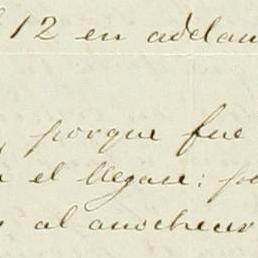 12 en adelan
porque fue
el llegase: pe
al anochecer